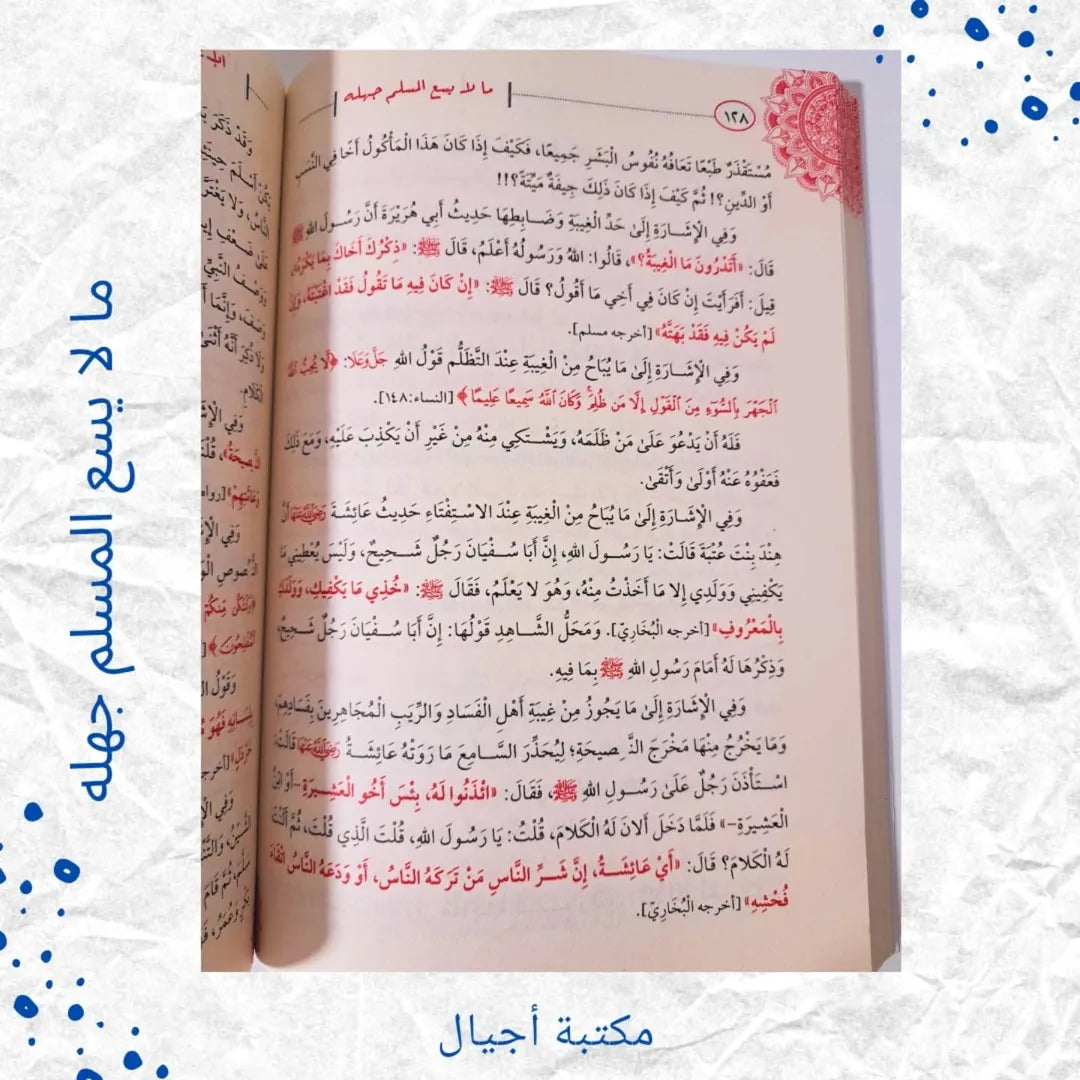 ما لا يسع المسلم جهله
ما لا يسع المسلم جهله
١٢٨
مُسْتَقْذَرٌ طَبْعًا تَعَافُهُ نُفُوسُ الْبَشَرِ جَمِيعًا، فَكَيْفَ إِذَا كَانَ هَذَا الْمَأْكُولُ أَخًا فِي النَّسَبِ
أَوْ الدِّينِ؟! ثُمَّ كَيْفَ إِذَا كَانَ ذَلِكَ جِيفَةً مَيْتَةً؟!!
وَفِي الْإِشَارَةِ إِلَىٰ حَدِّ الْغِيبَةِ وَضَابِطِهَا حَدِيثُ أَبِي هُرَيْرَةَ أَنَّ رَسُولَ اللهِ ﷺ
قَالَ: «أَتَدْرُونَ مَا الْغِيبَةُ؟»، قَالُوا: اللهُ وَرَسُولُهُ أَعْلَمُ، قَالَ ﷺ: «ذِكْرُكَ أَخَاكَ بِمَا يَكْرَهُ»،
قِيلَ: أَفَرَأَيْتَ إِنْ كَانَ فِي أَخِي مَا أَقُولُ؟ قَالَ ﷺ: «إِنْ كَانَ فِيهِ مَا تَقُولُ فَقَدْ اغْتَبْتَهُ، فَإِنْ
لَمْ يَكُنْ فِيهِ فَقَدْ بَهَتَّهُ» [أخرجه مسلم].
وَفِي الْإِشَارَةِ إِلَىٰ مَا يُبَاحُ مِنْ الْغِيبَةِ عِنْدَ التَّظَلُّمِ قَوْلُ اللهِ جَلَّ وَعَلَا: ﴿لَّا يُحِبُّ اللَّهُ
الْجَهْرَ بِالسُّوءِ مِنَ الْقَوْلِ إِلَّا مَن ظُلِمَ ۚ وَكَانَ اللَّهُ سَمِيعًا عَلِيمًا﴾ [النساء:١٤٨].
فَلَهُ أَنْ يَدْعُوَ عَلَىٰ مَنْ ظَلَمَهُ، وَيَشْتَكِي مِنْهُ مِنْ غَيْرِ أَنْ يَكْذِبَ عَلَيْهِ، وَمَعَ ذَلِكَ
فَعَفْوُهُ عَنْهُ أَوْلَىٰ وَأَتْقَىٰ.
وَفِي الْإِشَارَةِ إِلَىٰ مَا يُبَاحُ مِنْ الْغِيبَةِ عِنْدَ الاسْتِفْتَاءِ حَدِيثُ عَائِشَةَ رَضِيَ اللَّهُ عَنْهَا أَنَّ
هِنْدَ بِنْتَ عُتْبَةَ قَالَتْ: يَا رَسُولَ اللهِ، إِنَّ أَبَا سُفْيَانَ رَجُلٌ شَحِيحٌ، وَلَيْسَ يُعْطِينِي مَا
يَكْفِينِي وَوَلَدِي إِلا مَا أَخَذْتُ مِنْهُ، وَهُوَ لا يَعْلَمُ، فَقَالَ ﷺ: «خُذِي مَا يَكْفِيكِ، وَوَلَدَكِ
بِالْمَعْرُوفِ» [أخرجه الْبُخَارِيّ]. وَمَحَلُّ الشَّاهِدِ قَوْلُهَا: إِنَّ أَبَا سُفْيَانَ رَجُلٌ شَحِيحٌ،
وَذِكْرُهَا لَهُ أَمَامَ رَسُولِ اللهِ ﷺ بِمَا فِيهِ.
وَفِي الْإِشَارَةِ إِلَىٰ مَا يَجُوزُ مِنْ غِيبَةِ أَهْلِ الْفَسَادِ وَالرِّيَبِ الْمُجَاهِرِينَ بِفَسَادِهِمْ،
وَمَا يَخْرُجُ مِنْهَا مَخْرَجَ النَّصِيحَةِ؛ لِيُحَذِّرَ السَّامِعَ مَا رَوَتْهُ عَائِشَةُ رَضِيَ اللَّهُ عَنْهَا قَالَتْ:
اسْتَأْذَنَ رَجُلٌ عَلَىٰ رَسُولِ اللهِ ﷺ، فَقَالَ: «ائْذَنُوا لَهُ، بِئْسَ أَخُو الْعَشِيرَةِ -أَوْ ابْنُ
الْعَشِيرَةِ-» فَلَمَّا دَخَلَ أَلانَ لَهُ الْكَلامَ، قُلْتُ: يَا رَسُولَ اللهِ، قُلْتَ الَّذِي قُلْتَ، ثُمَّ أَلَنْتَ
لَهُ الْكَلامَ؟ قَالَ: «أَيْ عَائِشَةُ، إِنَّ شَرَّ النَّاسِ مَنْ تَرَكَهُ النَّاسُ، أَوْ وَدَعَهُ النَّاسُ اتِّقَاءَ
فُحْشِهِ» [أخرجه الْبُخَارِيّ].
مكتبة أجيال